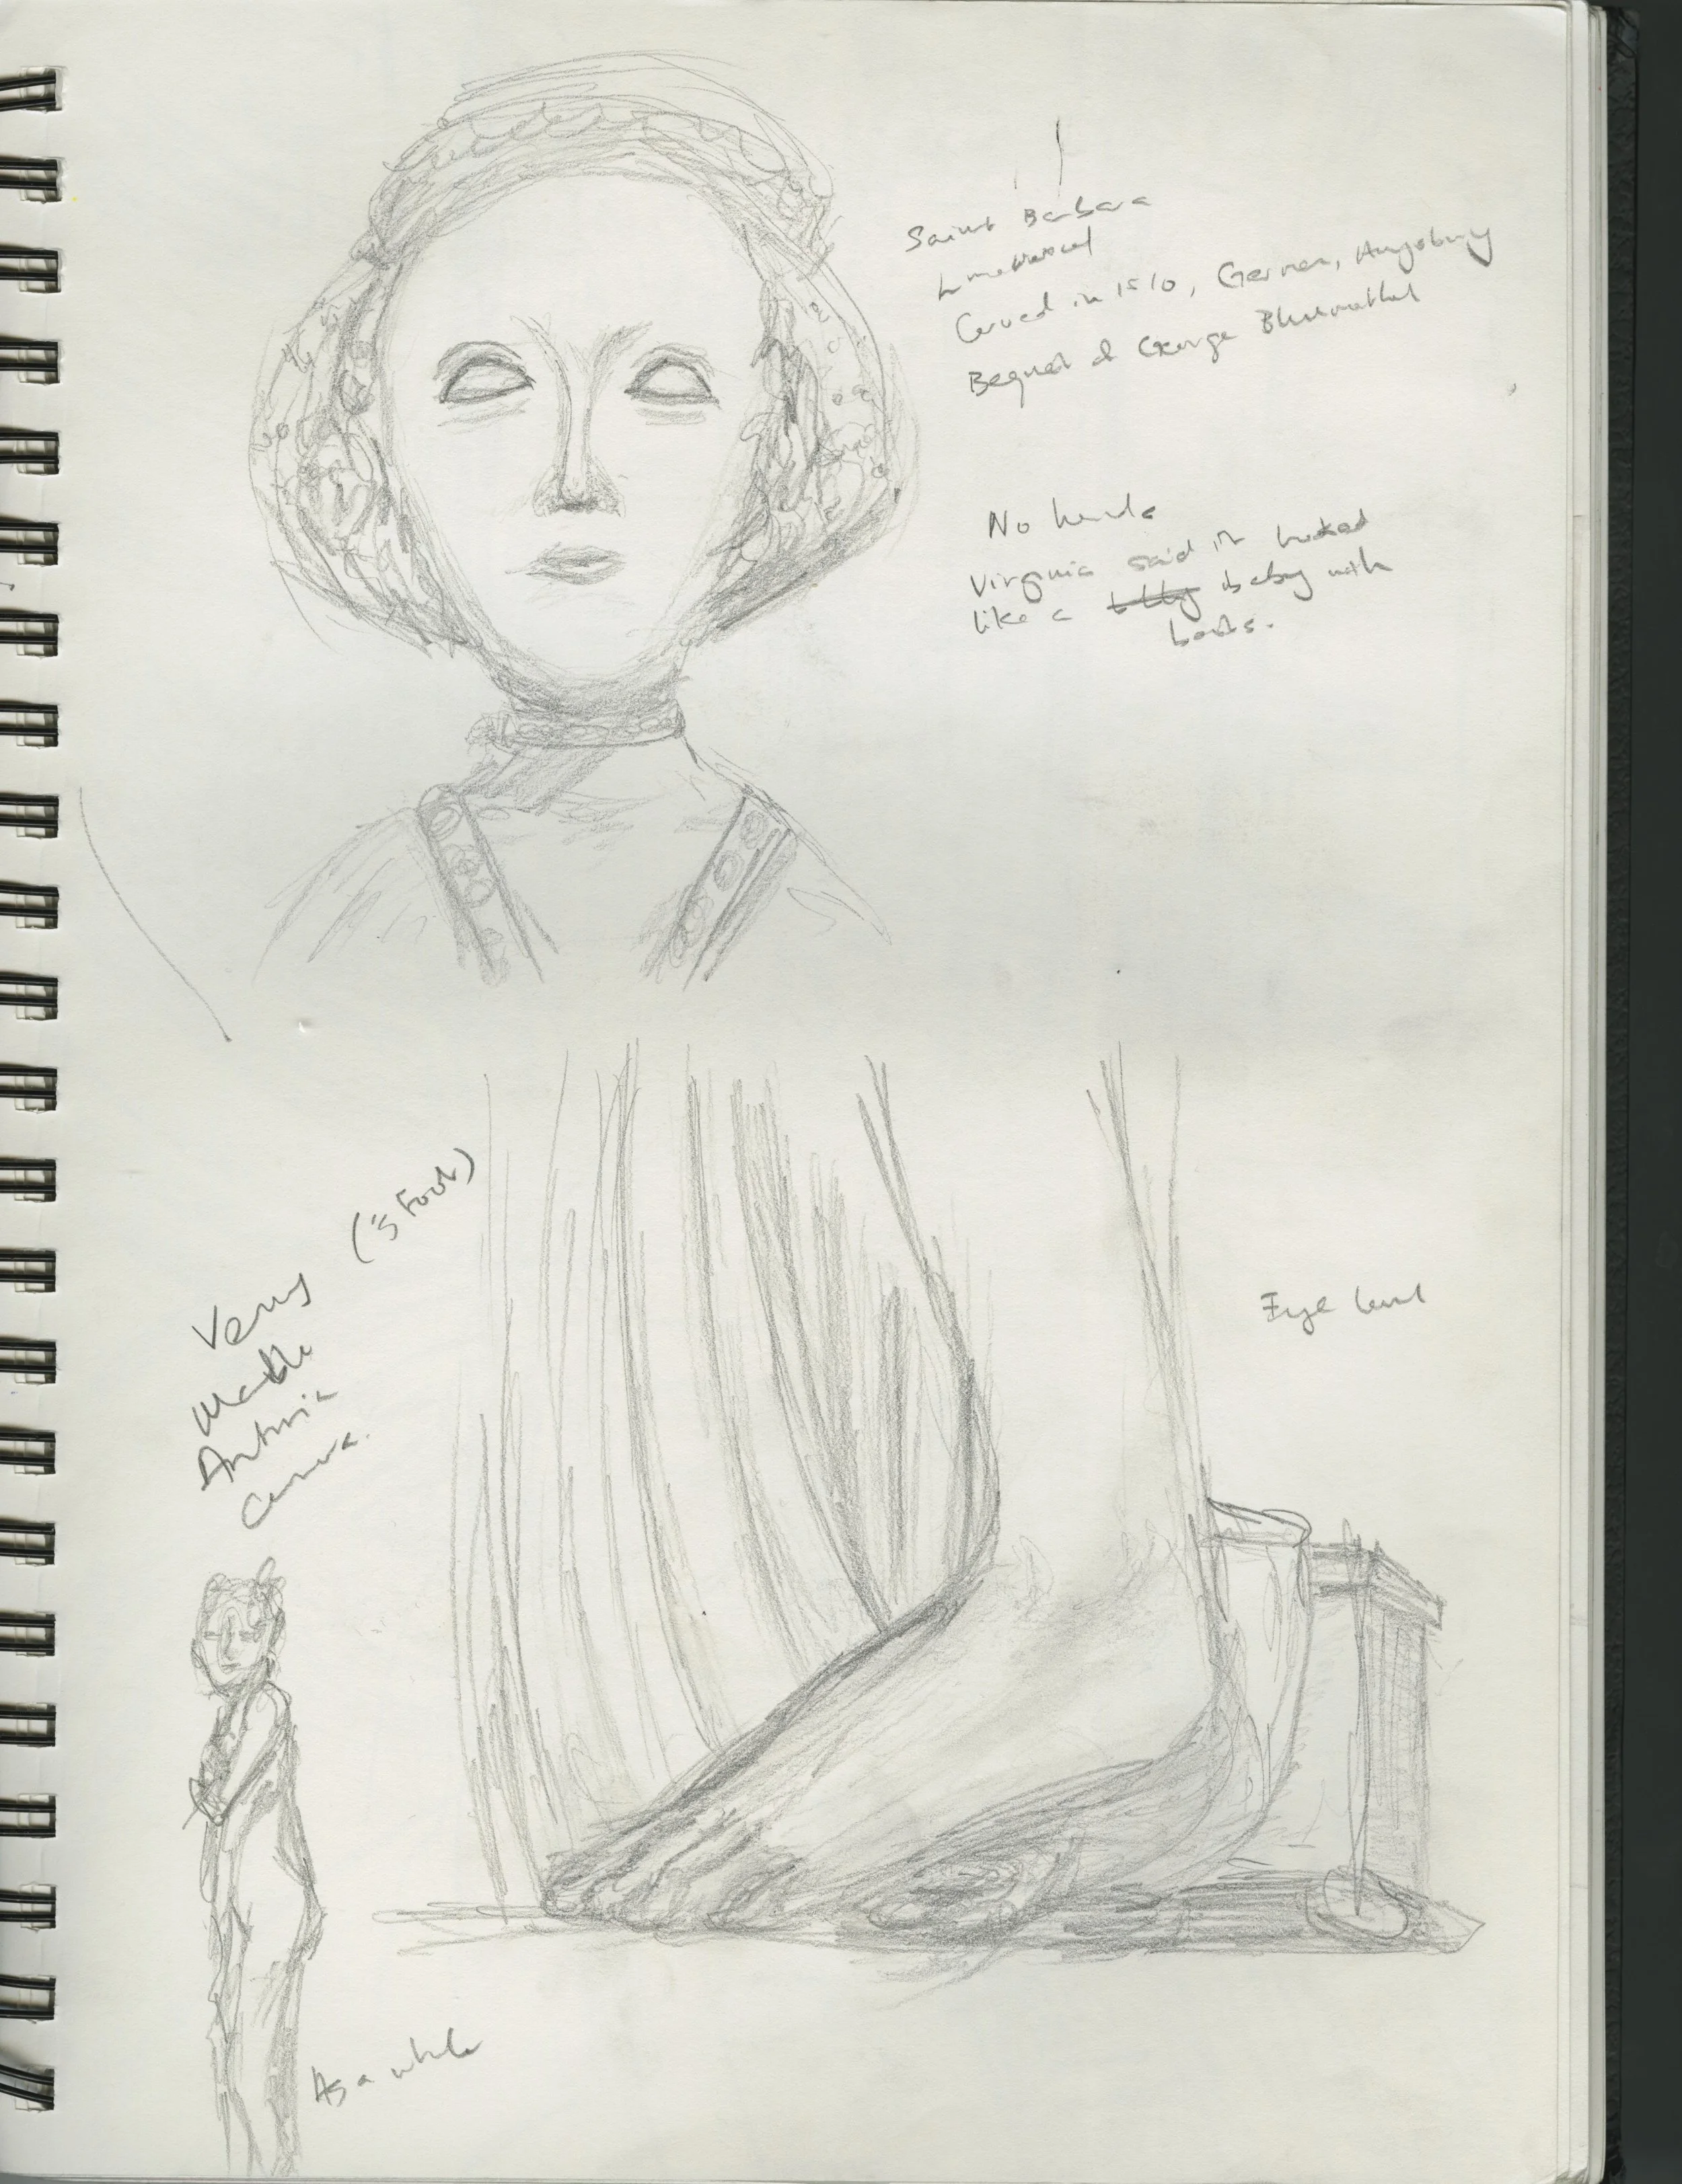 Saint Barbara
Limewood
Carved in 1510, German, Augsburg
Bequest of George Blumenthal
No hands
Virginia said it looked
like a baby with
boobs.
('s Foot)
Venus
Marble
Antonio
Canova.
Eye level
As a whole